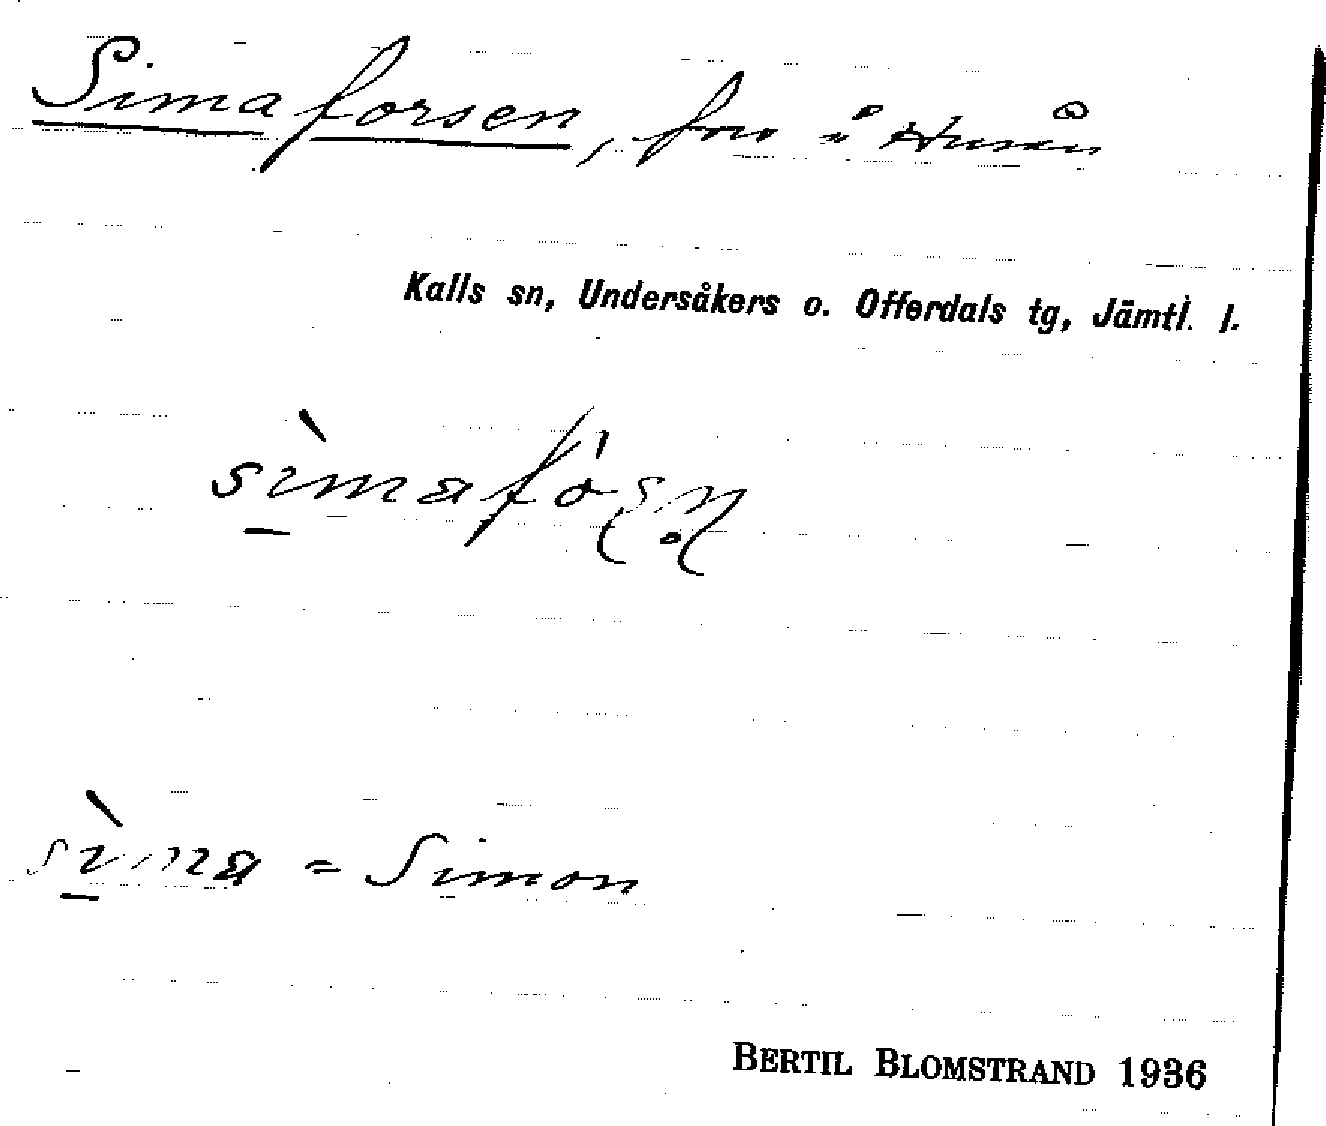 Simaforsen, fors i Huså
Kalls sn, Undersåkers o. Offerdals tg, Jämtl. l.
sìmafóʂn̥
sìma = Simon
BERTIL BLOMSTRAND 1936